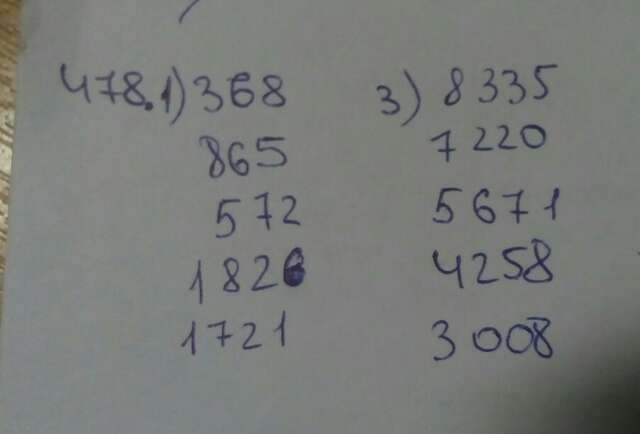 478.1) 368
865
572
1826
1721
3) 8335
7220
5671
4258
3008